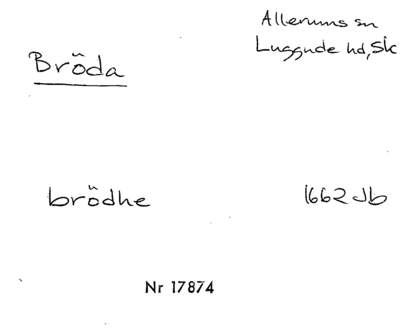 Allerums sn
Luggude hd, Sk
Bröda
brödhe
1662 Jb
Nr 17874